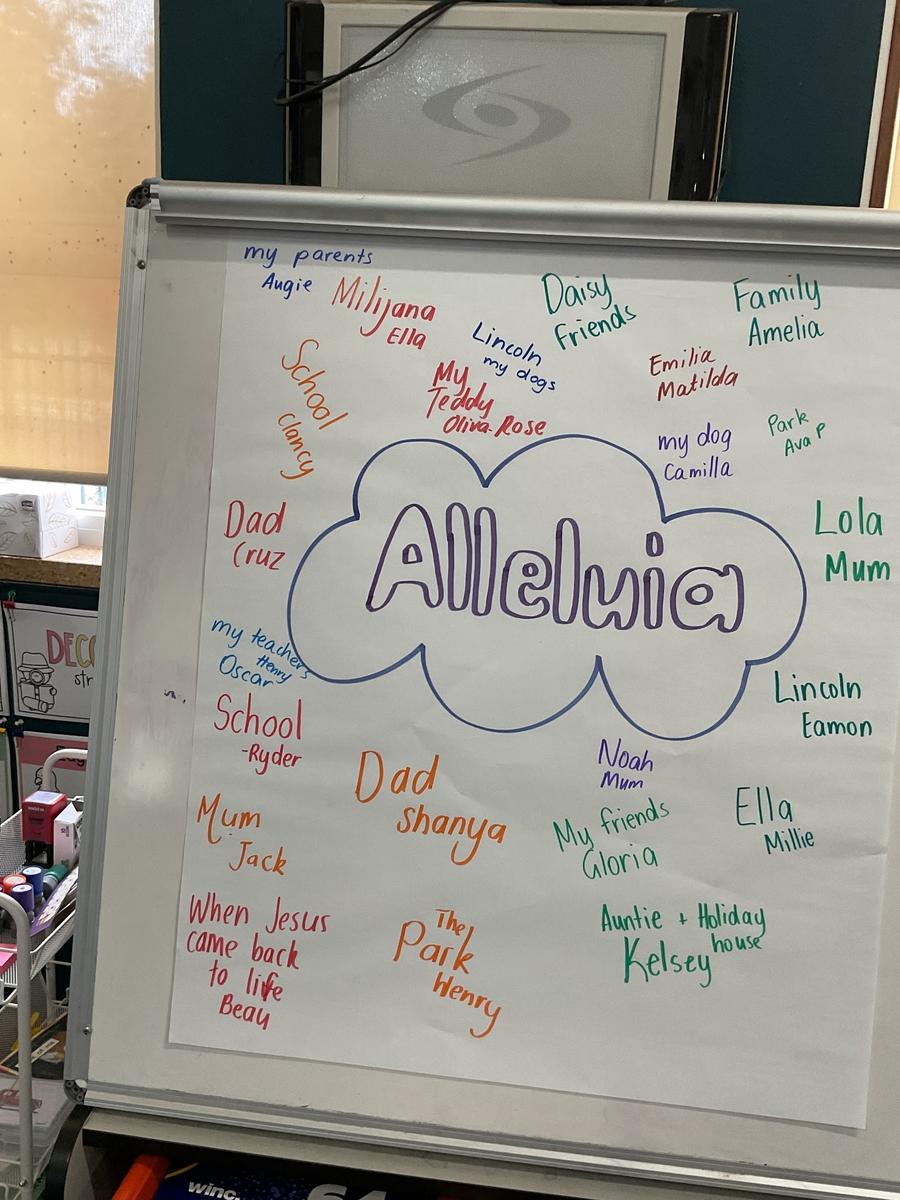 my parents
Augie
Milijana
Ella
Lincoln
my dogs
Daisy
Friends
Family
Amelia
School
Clancy
My
Teddy
Oliva-Rose
Emilia
Matilda
my dog
Camilla
Park
Ava P
Dad
Cruz
Alleluia
Lola
Mum
my teachers
Henry
Oscar
Lincoln
Eamon
School
-Ryder
Dad
Shanya
Noah
Mum
Mum
Jack
My friends
Gloria
Ella
Millie
When Jesus
came back
to life
Beau
The
Park
Henry
Auntie + Holiday
house
Kelsey
DECO
str
winc.
64